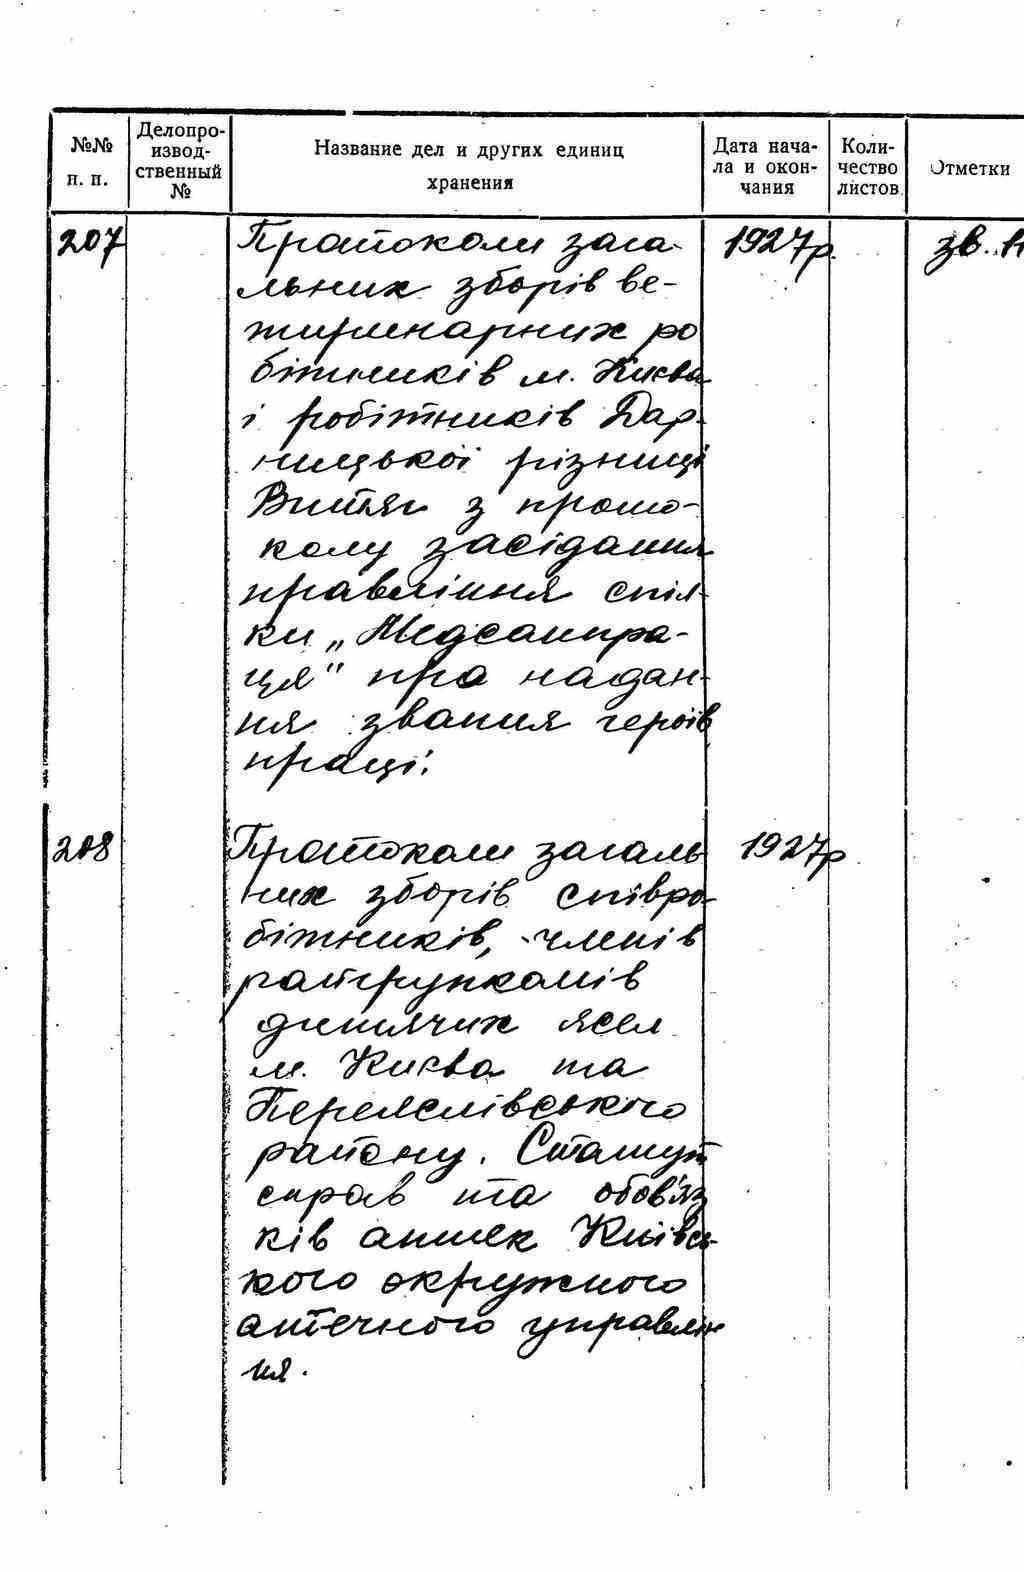 №№ п. п.
Делопро-
извод-
ственный
№
Название дел и других единиц
хранения
Дата нача-
ла и окон-
чания
Коли-
чество
листов
Отметки
207
Протоколи зага-
льних зборів ве-
теринарних ро
бітників м. Києва
і робітників Дар-
ницької різниці
Витяг з прото-
колу засідання
правління спіл-
ки „Медсанпра-
ця" про надан-
ня звання героїв
праці.
1927р.
зв.
208
Протоколи загаль
них зборів співро-
бітників, членів
райтрупкомів
дитячих ясел
м. Києва та
Переяслівського
району. Статут
справ та обов'яз
ків аптек Київсь-
кого окружного
аптечного управлін
ня.
1927р